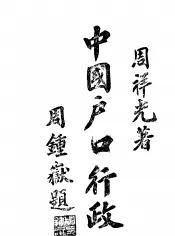 周祥光著
中國戶口行政
周鍾嶽題